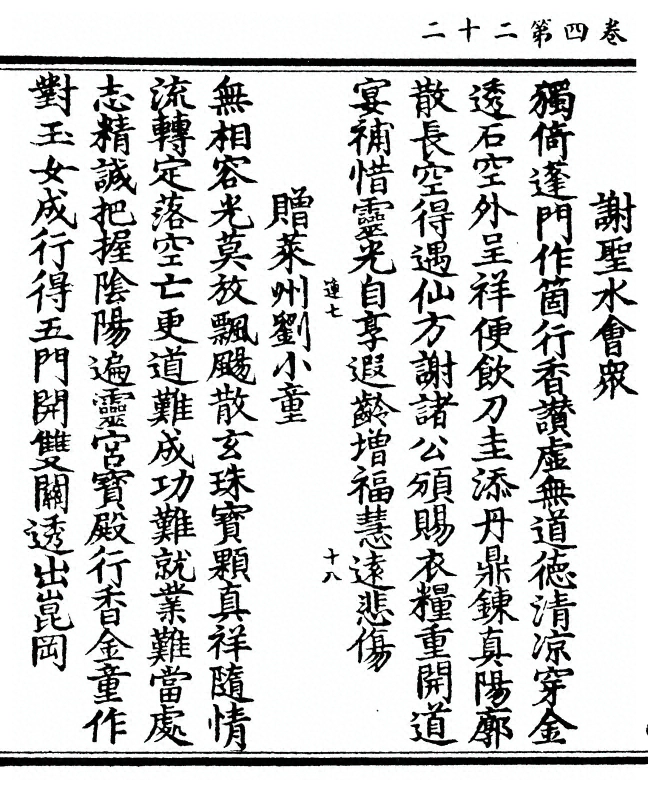 卷四第二十二
謝聖水會衆
獨倚蓬門作箇行香讃虛無道德清凉穿金
透石空外呈祥便飲刀圭添丹鼎鍊真陽廓
散長空得遇仙方謝諸公頒賜衣糧重開道
宴補惜靈光自享遐齡增福慧遠悲傷
連七
十八
贈萊州劉小童
無相容光莫放飄颺散玄珠寶顆真祥隨情
流轉定落空亡更道難成功難就業難當處
志精誠把握陰陽遍靈宮寶殿行香金童作
對玉女成行得五門開雙關透出崑岡